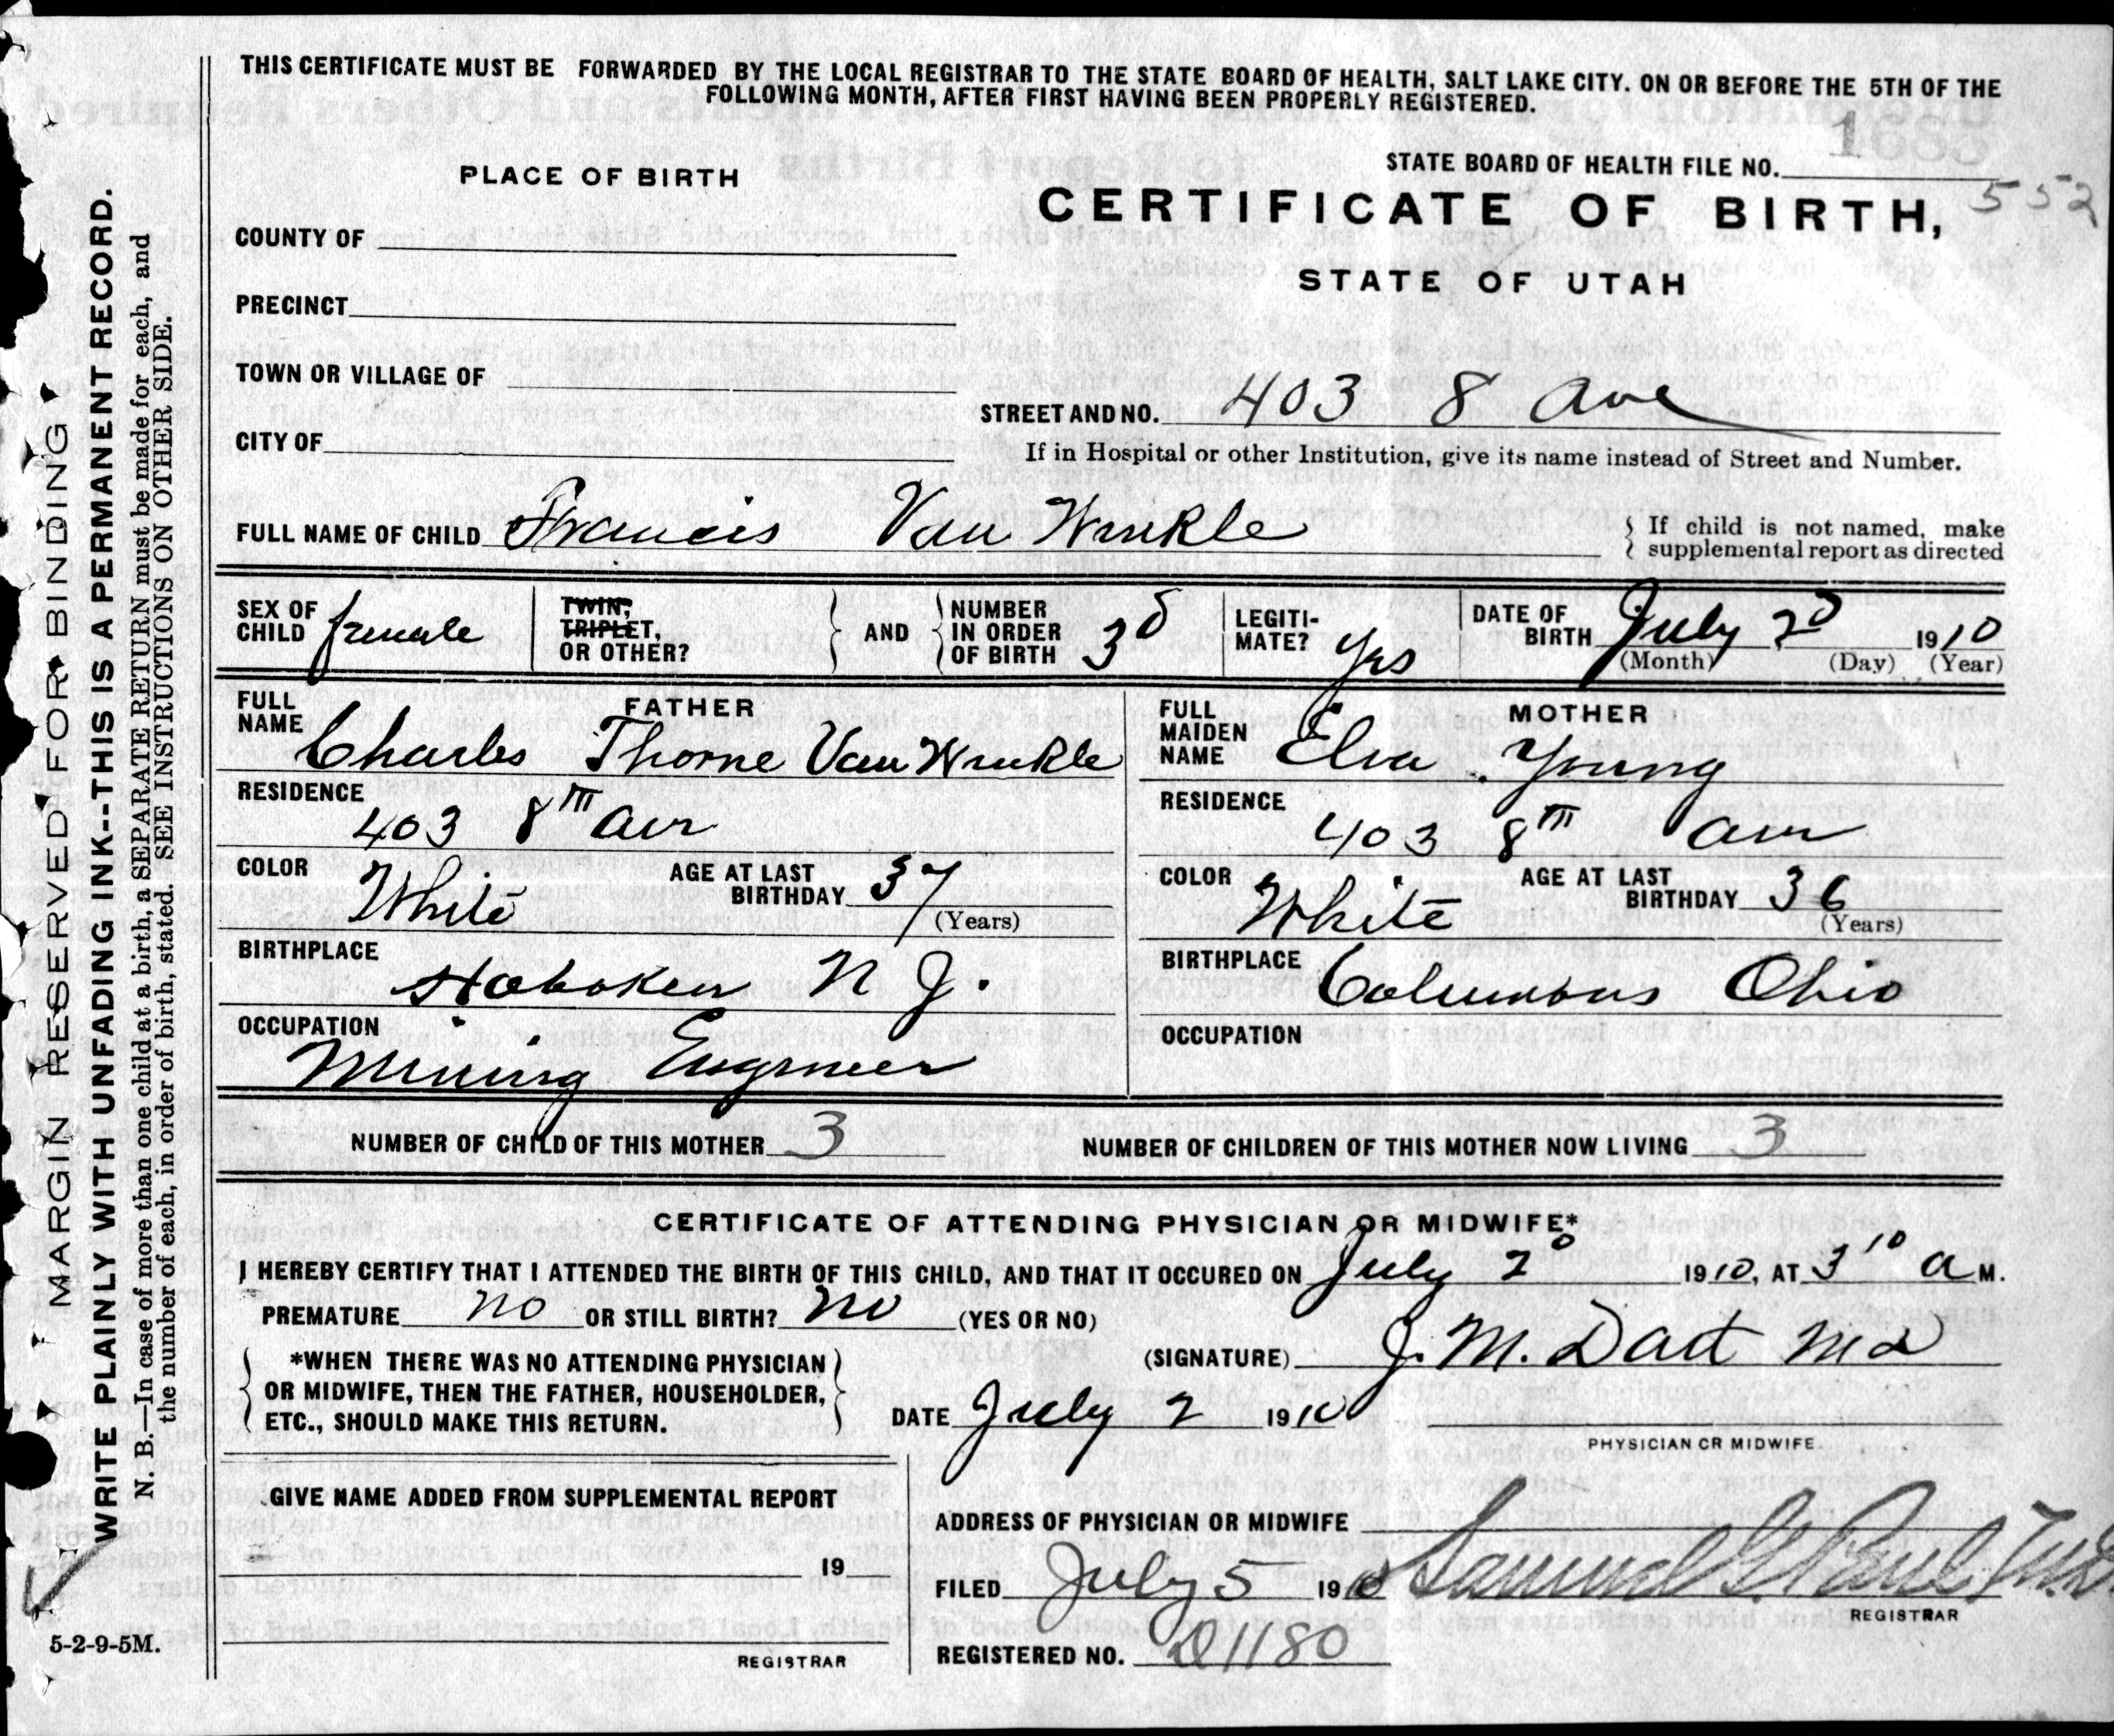 THIS CERTIFICATE MUST BE FORWARDED BY THE LOCAL REGISTRAR TO THE STATE BOARD OF HEALTH, SALT LAKE CITY. ON OR BEFORE THE 5TH OF THE
FOLLOWING MONTH, AFTER FIRST HAVING BEEN PROPERLY REGISTERED.
MARGIN RESERVED FOR BINDING
WRITE PLAINLY WITH UNFADING INK--THIS IS A PERMANENT RECORD.
N. B.—In case of more than one child at a birth, a SEPARATE RETURN must be made for each, and
the number of each, in order of birth, stated. SEE INSTRUCTIONS ON OTHER SIDE.
PLACE OF BIRTH
STATE BOARD OF HEALTH FILE NO.
552
CERTIFICATE OF BIRTH,
STATE OF UTAH
COUNTY OF
PRECINCT
TOWN OR VILLAGE OF
STREET AND NO. 403 8 Ave
CITY OF
If in Hospital or other Institution, give its name instead of Street and Number.
FULL NAME OF CHILD Francis Van Winkle
If child is not named, make
supplemental report as directed
SEX OF CHILD female
TWIN, TRIPLET, OR OTHER?
AND
NUMBER IN ORDER OF BIRTH 3d
LEGITI-MATE? Yes
DATE OF BIRTH July 2d 1910
(Month) (Day) (Year)
FATHER
FULL NAME Charles Thorne Van Winkle
RESIDENCE 403 8TH Ave
COLOR White AGE AT LAST BIRTHDAY 37 (Years)
BIRTHPLACE Hoboken N J.
OCCUPATION Mining Engineer
MOTHER
FULL MAIDEN NAME Elva Young
RESIDENCE 403 8TH Ave
COLOR White AGE AT LAST BIRTHDAY 36 (Years)
BIRTHPLACE Columbus Ohio
OCCUPATION
NUMBER OF CHILD OF THIS MOTHER 3 NUMBER OF CHILDREN OF THIS MOTHER NOW LIVING 3
CERTIFICATE OF ATTENDING PHYSICIAN OR MIDWIFE*
I HEREBY CERTIFY THAT I ATTENDED THE BIRTH OF THIS CHILD, AND THAT IT OCCURED ON July 2d 1910, AT 3 10 a M.
PREMATURE no OR STILL BIRTH? no (YES OR NO)
*WHEN THERE WAS NO ATTENDING PHYSICIAN
OR MIDWIFE, THEN THE FATHER, HOUSEHOLDER,
ETC., SHOULD MAKE THIS RETURN.
(SIGNATURE) J. M. Dart MD
DATE July 2 1910
PHYSICIAN OR MIDWIFE.
GIVE NAME ADDED FROM SUPPLEMENTAL REPORT
19
REGISTRAR
ADDRESS OF PHYSICIAN OR MIDWIFE
FILED July 5 1910 Samuel G. Paul M.D.
REGISTRAR
REGISTERED NO. D1180
5-2-9-5M.